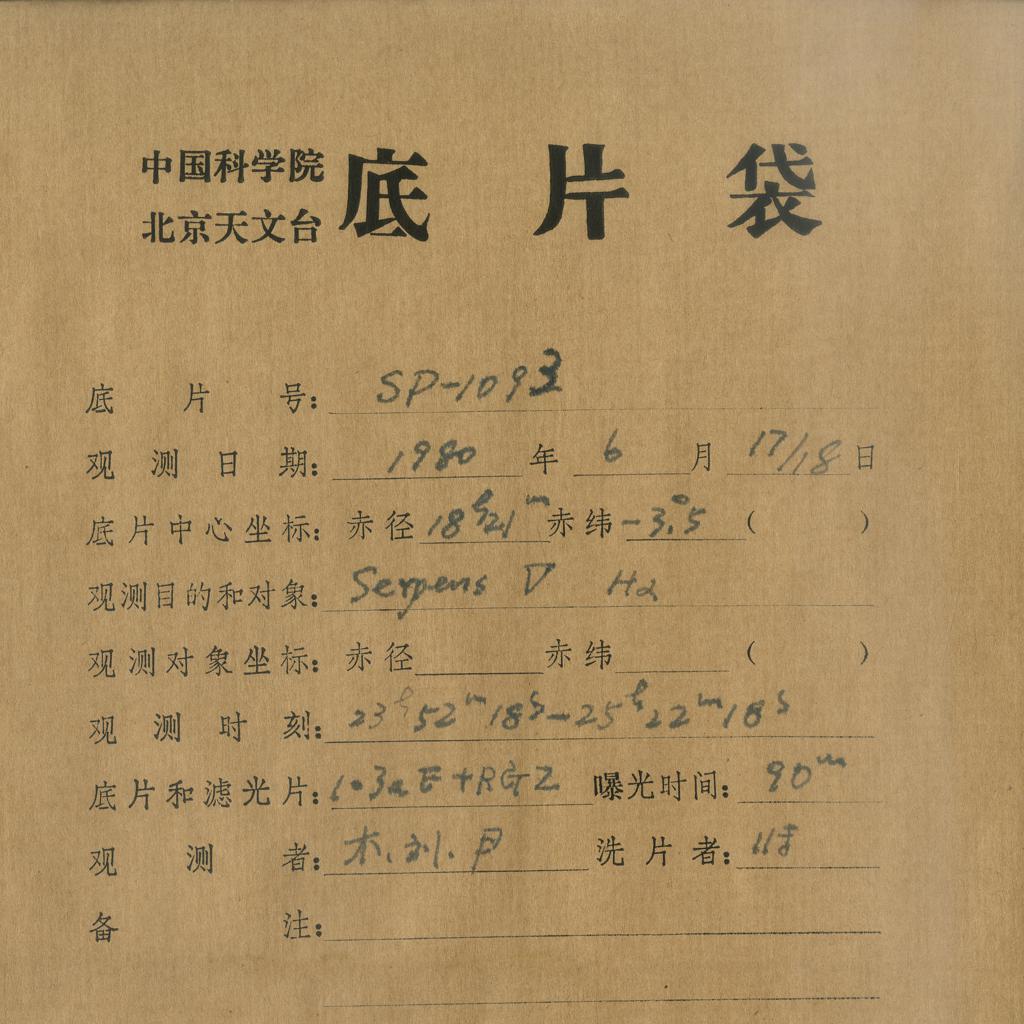 中国科学院
北京天文台
底片袋
底片号: SP-1093
观测日期: 1980 年 6 月 17/18 日
底片中心坐标: 赤径 18h21m 赤纬 -3°.5 ( )
观测目的和对象: Serpens Hα
观测对象坐标: 赤径 赤纬 ( )
观测时刻: 23h52m18s-25h22m18s
底片和滤光片: 103aE+RG2 曝光时间: 90m
观测者: 木、刘、尹 洗片者:
备注: